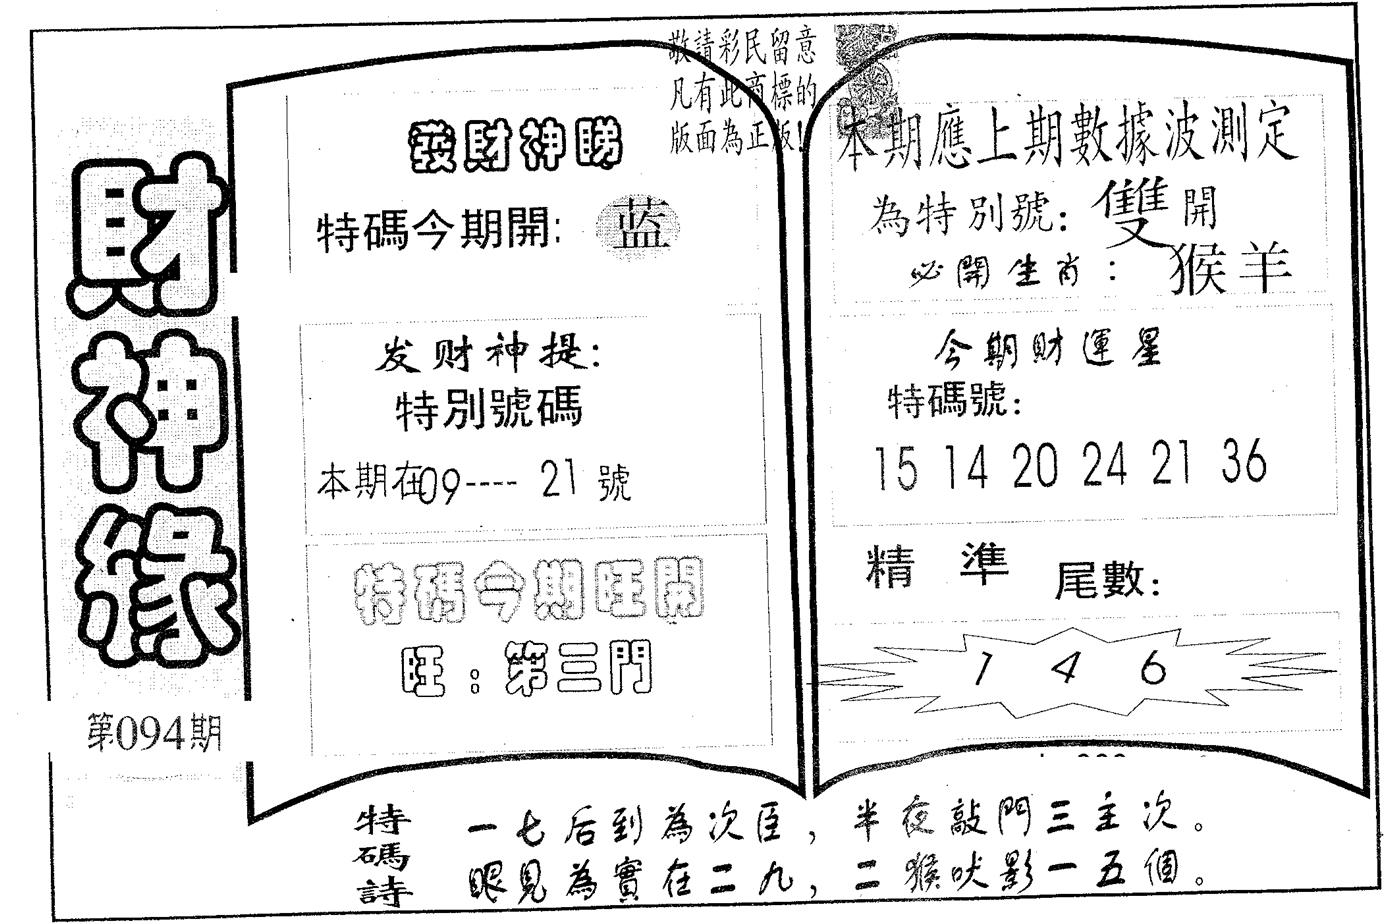 財神緣
第094期
敬請彩民留意
凡有此商標的
版面為正版!
發財神睇
特碼今期開: 蓝
发财神提:
特別號碼
本期在09---- 21 號
特碼今期旺開
旺:第三門
本期應上期數據波測定
為特別號: 雙開
必開生肖: 猴羊
今期財運星
特碼號:
15 14 20 24 21 36
精準尾數:
1 4 6
特碼詩
一七后到為次臣,半夜敲門三主次。
眼見為實在二九,二猴吠影一五個。